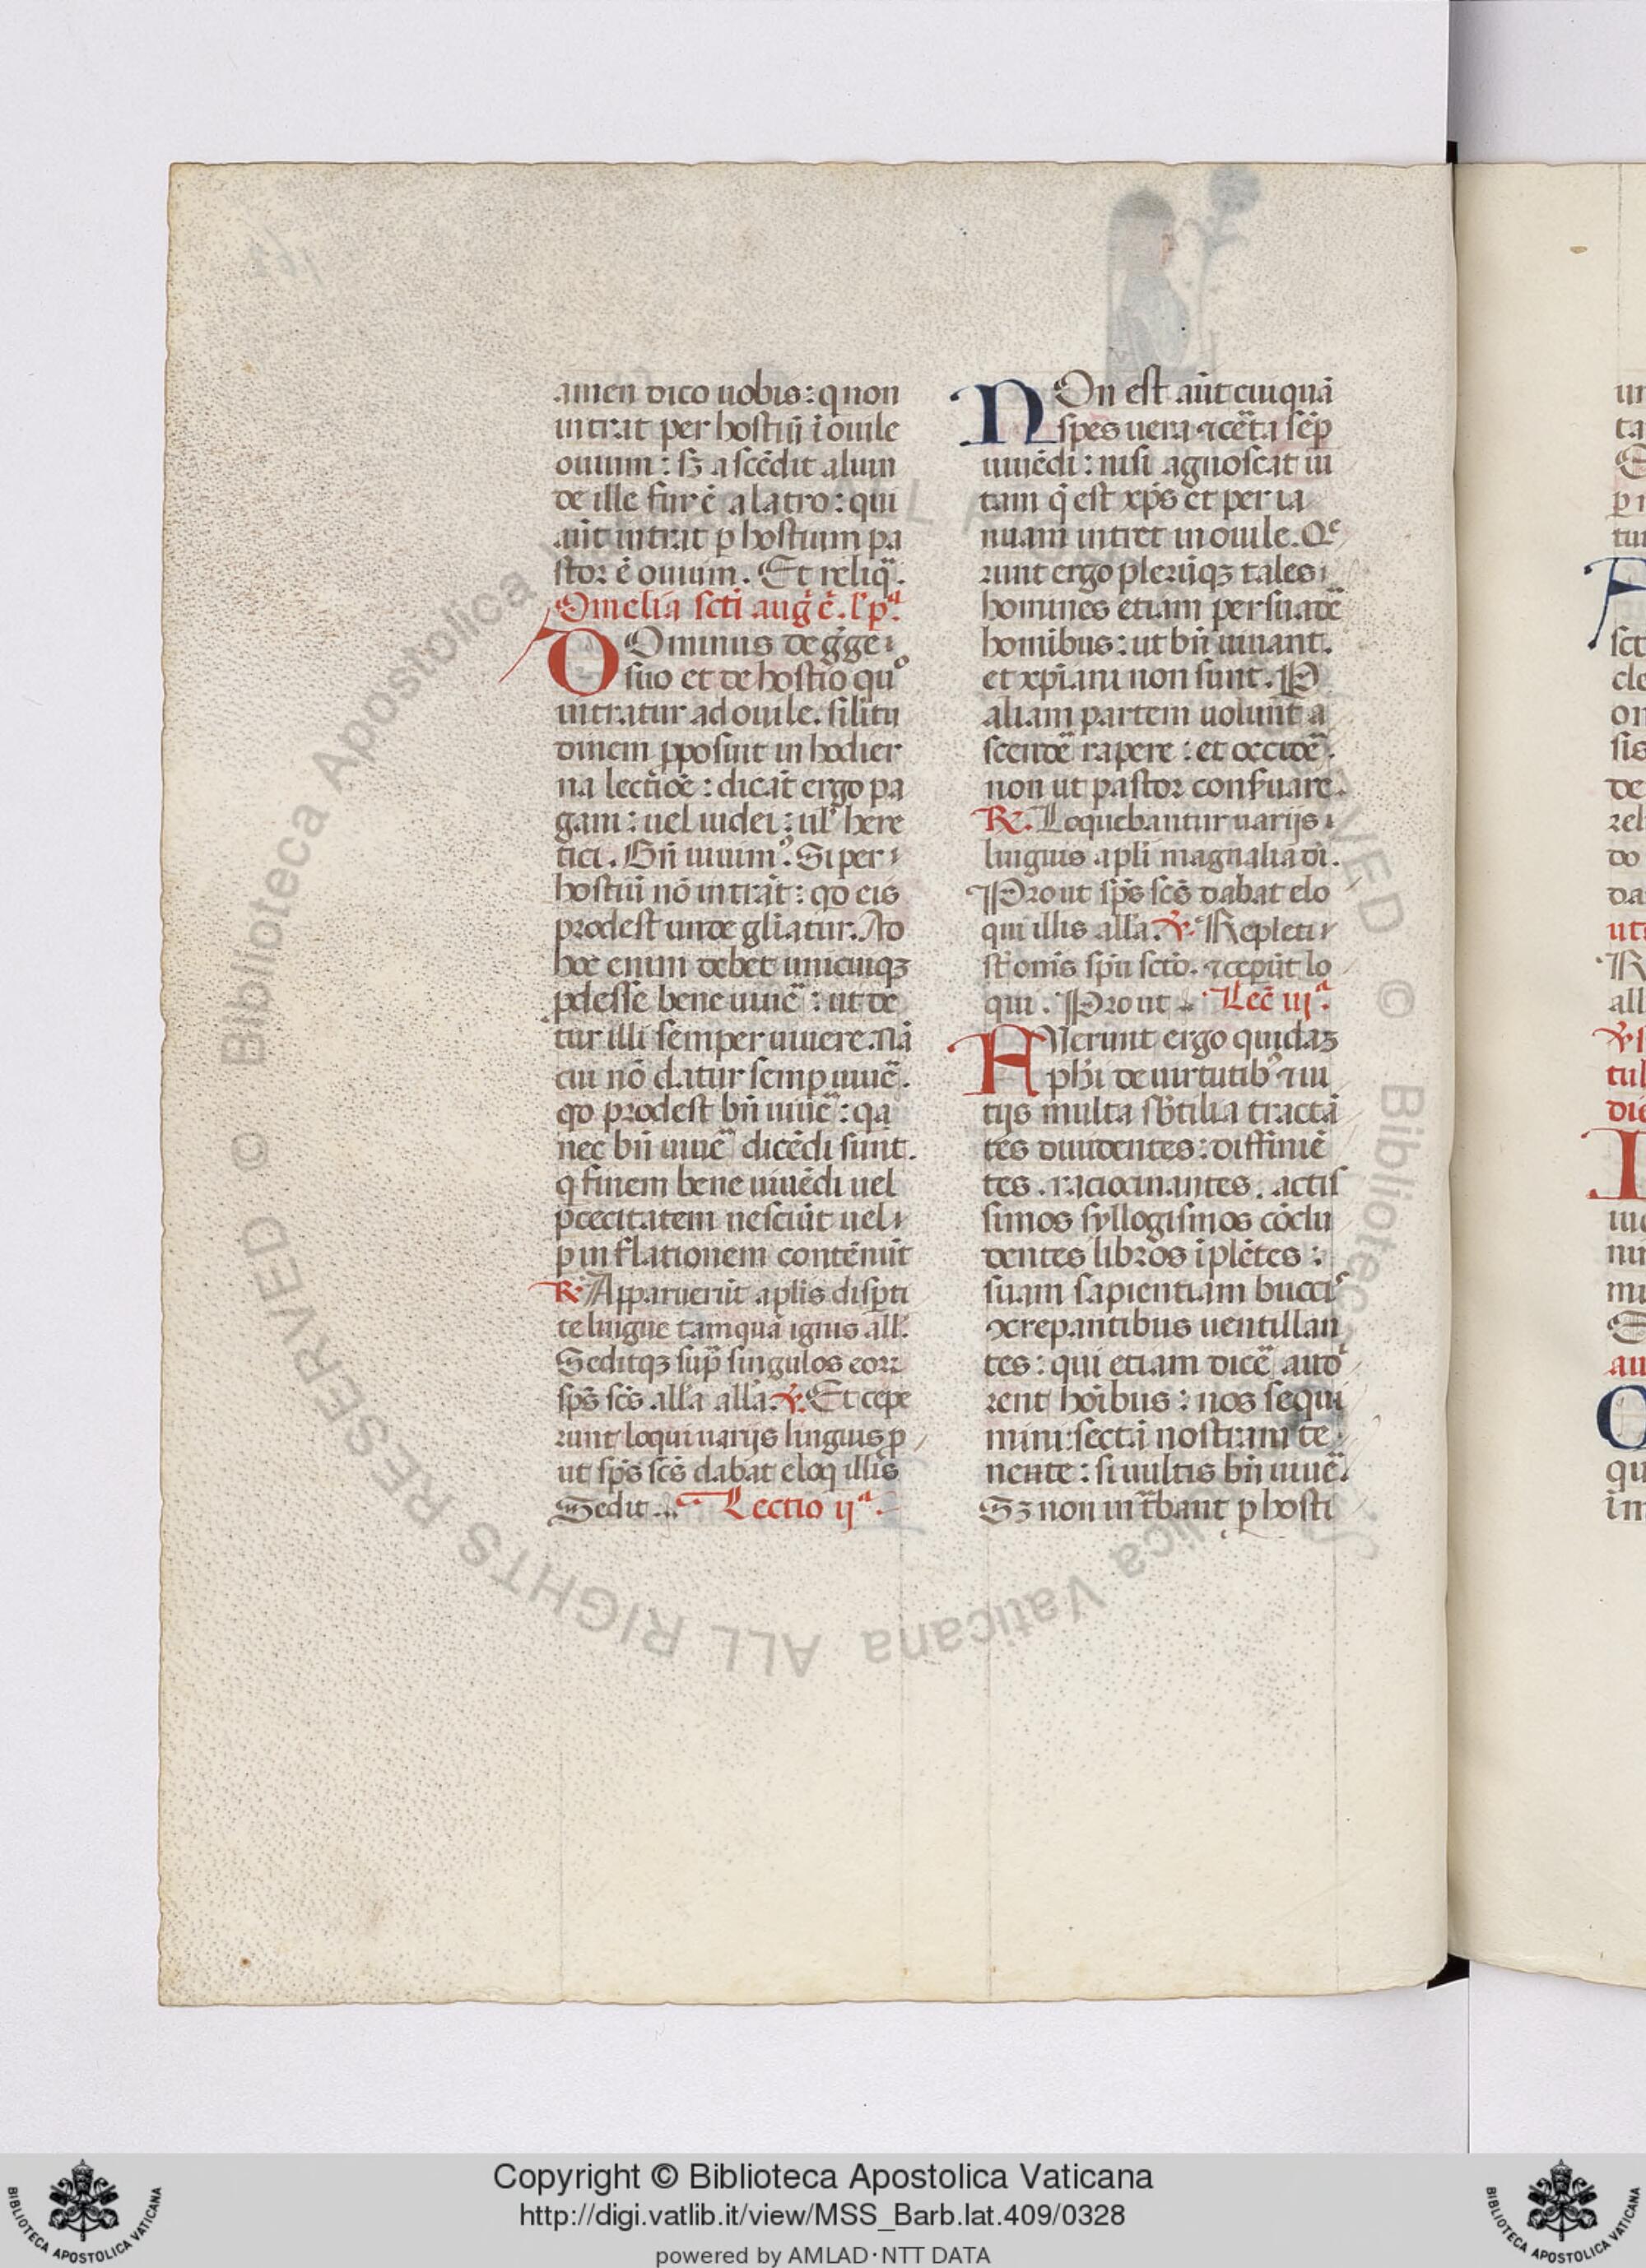 amen dico uobis: q non
intrat per hostiū ī ouile
ouium: sꝫ ascēdit aliun
de ille fur ē a latro: qui
aūt intrat p hostium pa
stor ē ouium. Et reliq̄.
Omelia scti auḡ ē. l' pᵃ.
DOminus de g̊ge
suo et de hostio quᵒ
intratur ad ouile. silitu
dinem pposuit in hodier
na lectiōe: dicāt ergo pa
gani: uel iudei: ul' here
tici. Bn̄ uiuimꝰ. Si per
hostiū nō intrāt: qd eis
prodest unde gliatur. Ad
hoc enim debet unicuiqꝫ
pdesse bene uiuē: ut de
tur illi semper uiuere. Nā
cui nō datur semp uiuē.
qd prodest bn̄ uiuē: qa
nec bn̄ uiuē dicēdi sunt.
q finem bene uiuēdi uel
pcecitatem nesciūt uel
p inflationem contēnūt
℟. Apparuerūt aplis dispti
te lingue tamquā ignis all'.
Seditqꝫ sup̄ singulos eoꝝ
sp̄s sc̄s all'a all'a. ℣. Et cepe
runt loqui uarijs linguis p
ut sp̄s sc̄s dabat eloq illis
Sedit. Lectio ijᵃ.
NOn est aūt cuiquā
spes uera ⁊ cēta sēp
uiuēdi: nisi agnoscat ui
tam q̄ est xp̄s et per ia
nuam intret in ouile. Qᵉ
runt ergo pleriqꝫ tales
homines etiam persuadē
homībus: ut bn̄ uiuant.
et xp̄iani non sunt. P
aliam partem uolunt a
scendē rapere: et occidē.
non ut pastor conꝰuare.
℟. Loquebantur uarijs
linguis apli magnalia dī.
Prout sp̄s sc̄s dabat elo
qui illis all'a. ℣. Repleti
st om̄s sp̄u scto. ⁊ cepūt lo
qui. Prout. Lec̄ iijᵃ.
FUerunt ergo quidaꝫ
phi de uirtutibꝰ ⁊ ui
tijs multa sb̄tilia tractā
tes diuidentes: diffiniē
tes. raciocinantes. actis
simos syllogismos cōclu
dentes libros īplētes:
suam sapientiam bucciˢ
ↄcrepantibus uentillan
tes: qui etiam dicē audᵉ
rent hoībus: nos sequi
mini: sectā nostram te
nente: si uultis bn̄ uiuē.
Sꝫ non int̄bant p hosti
Copyright © Biblioteca Apostolica Vaticana
http://digi.vatlib.it/view/MSS_Barb.lat.409/0328
powered by AMLAD·NTT DATA
BIBLIOTECA APOSTOLICA VATICANA
BIBLIOTECA APOSTOLICA VATICANA